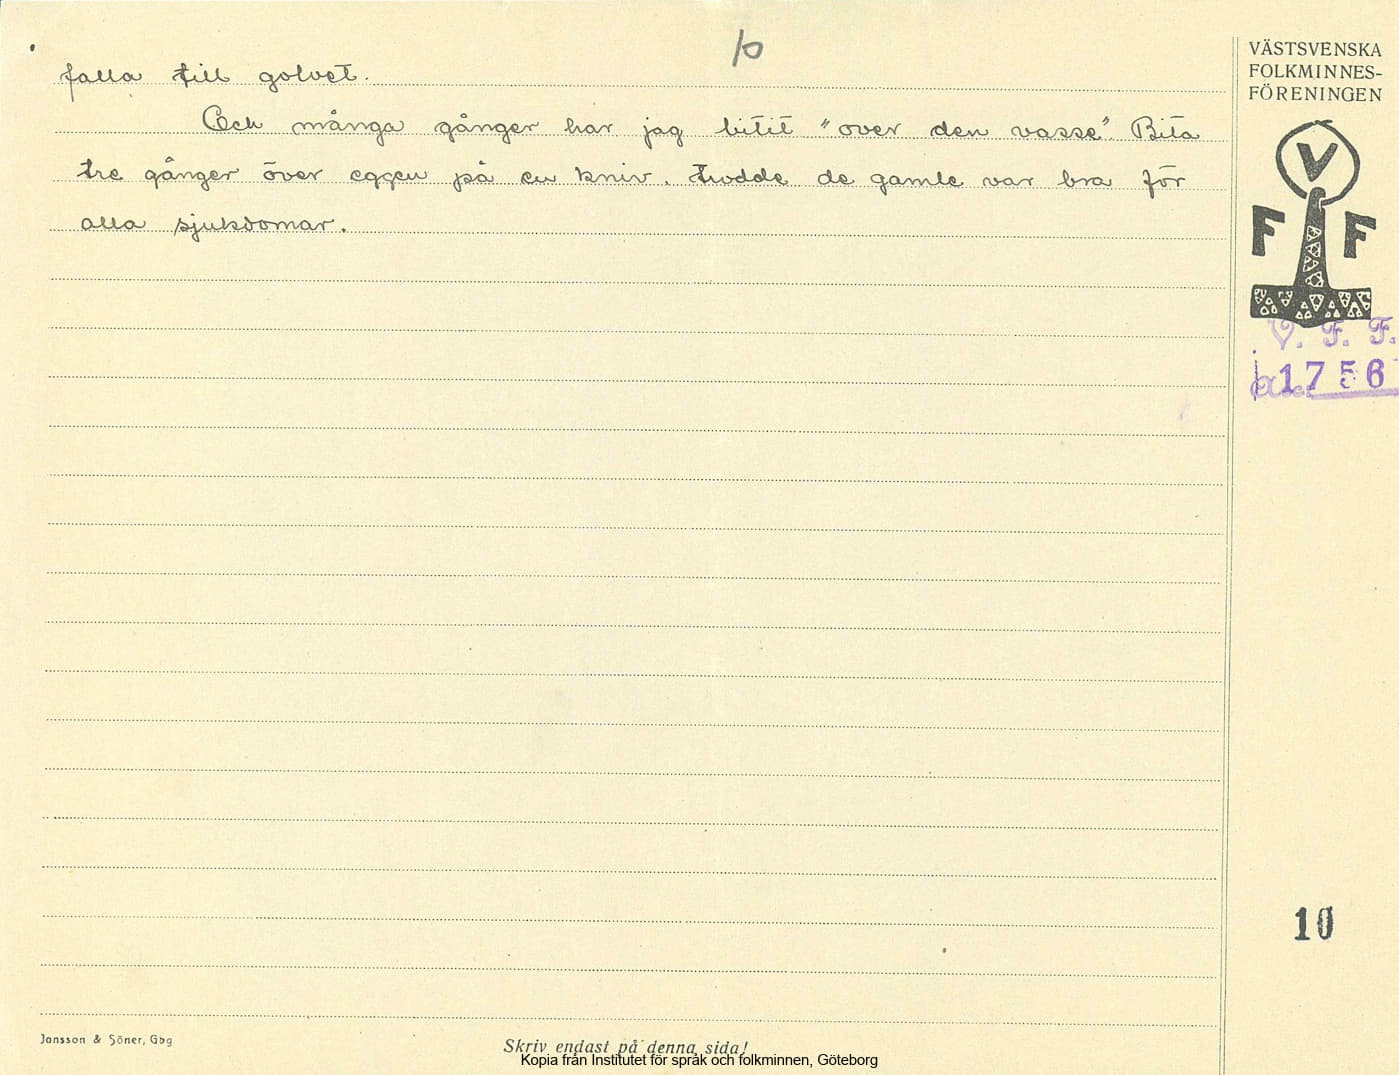 10
falla till golvet.
Och många gånger har jag bitit "over den vasse" Bita
tre gånger över eggen på en kniv. trodde de gamle var bra för
alla sjukdomar.
VÄSTSVENSKA
FOLKMINNES-
FÖRENINGEN
V
F F
V. F. F.
1756
10
Jansson & Söner, Gbg
Skriv endast på denna sida!
Kopia från Institutet för språk och folkminnen, Göteborg